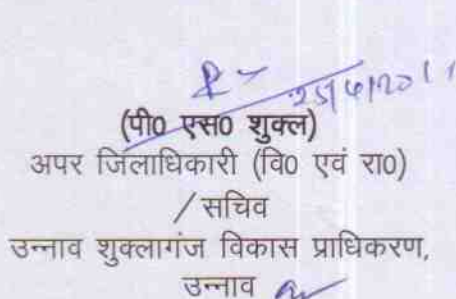 25/6/2011
(पी0 एस0 शुक्ल)
अपर जिलाधिकारी (वि0 एवं रा0)
/सचिव
उन्नाव शुक्लागंज विकास प्राधिकरण,
उन्नाव